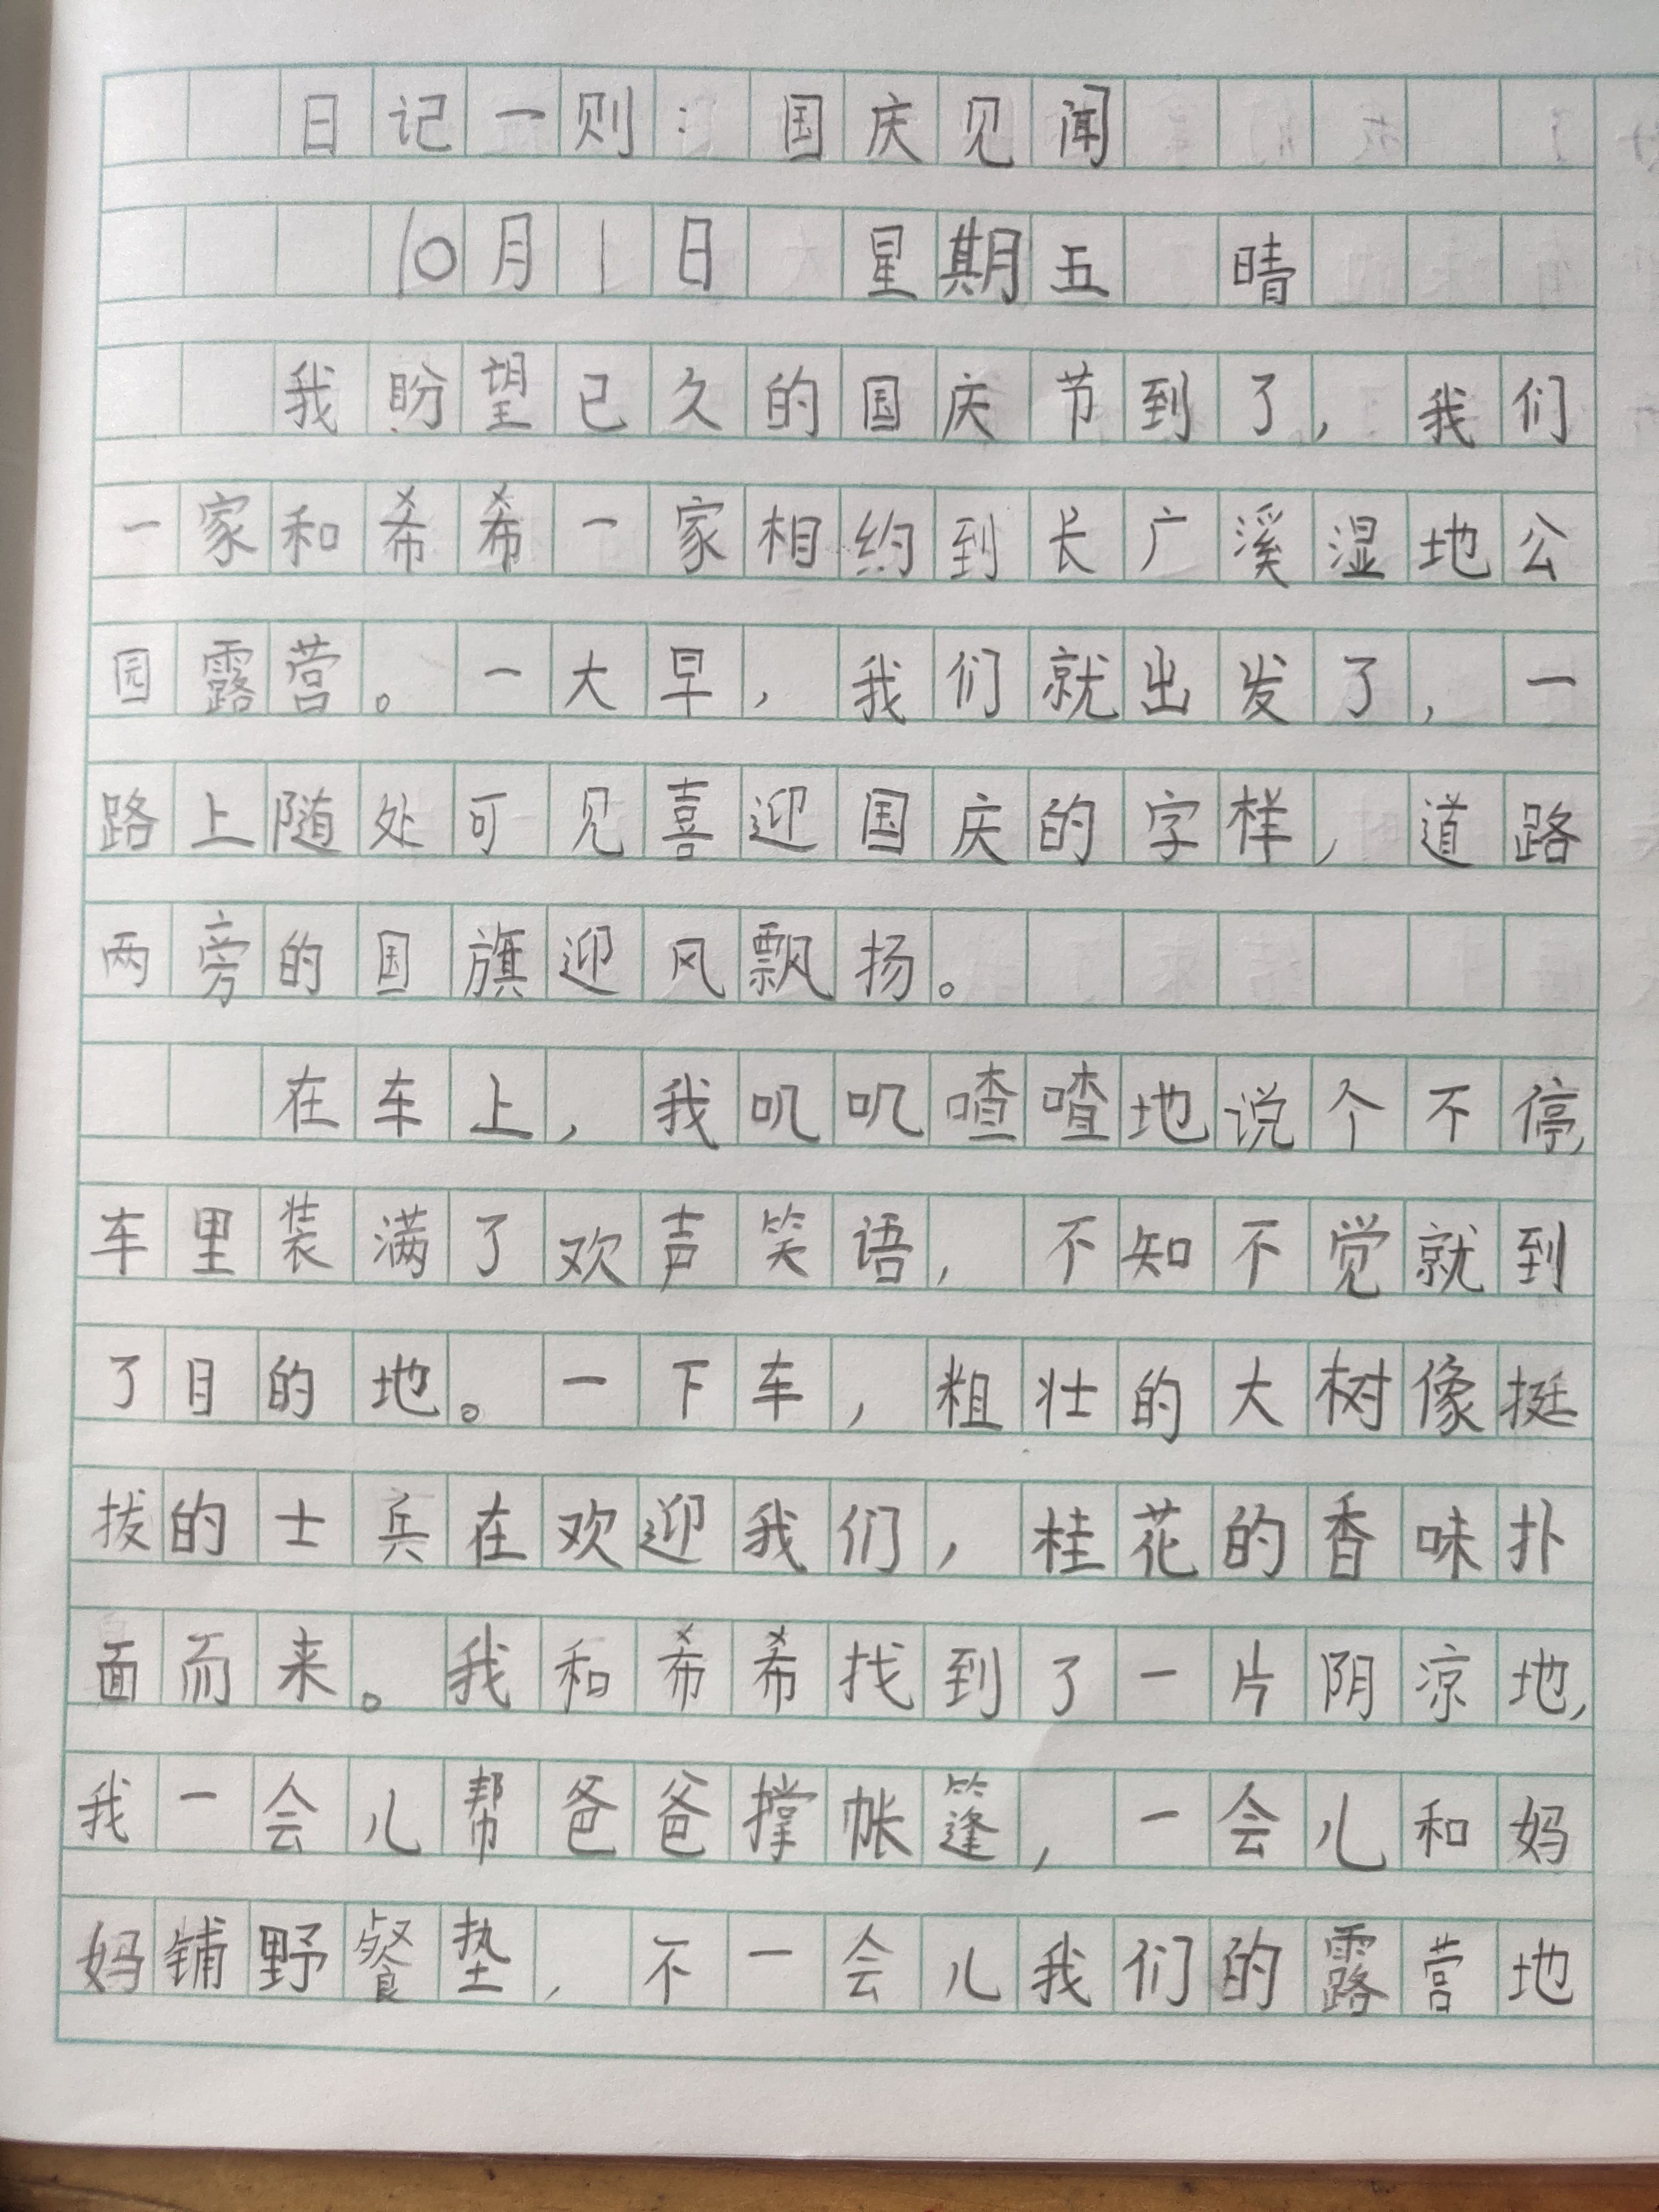 日记一则：国庆见闻
10月1日 星期五 晴
我盼望已久的国庆节到了，我们
一家和希希一家相约到长广溪湿地公
园露营。一大早，我们就出发了，一
路上随处可见喜迎国庆的字样，道路
两旁的国旗迎风飘扬。
在车上，我叽叽喳喳地说个不停，
车里装满了欢声笑语，不知不觉就到
了目的地。一下车，粗壮的大树像挺
拔的士兵在欢迎我们，桂花的香味扑
面而来。我和希希找到了一片阴凉地，
我一会儿帮爸爸撑帐篷，一会儿和妈
妈铺野餐垫，不一会儿我们的露营地